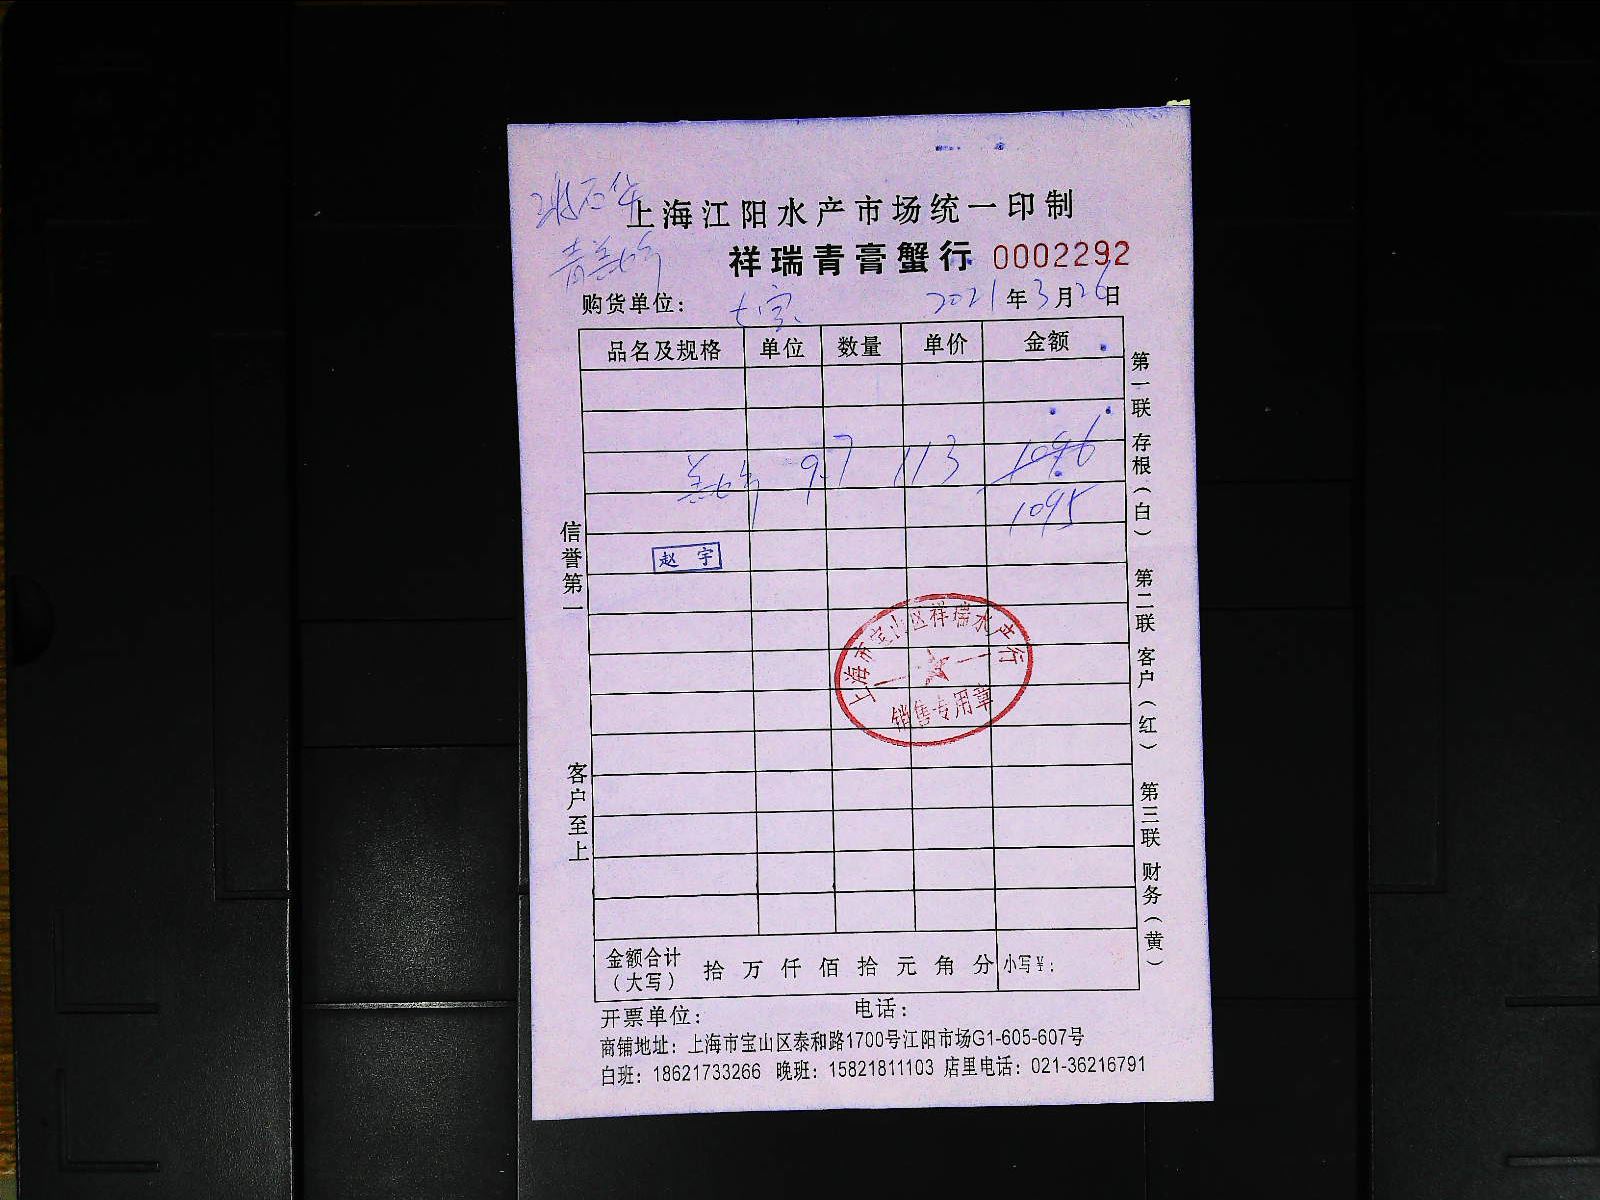 上海江阳水产市场统一印制
祥瑞青膏蟹行 0002292
购货单位： 七宝 2021年3月26日
品名及规格 单位 数量 单价 金额
9.7 113 1096
1095
赵宇
上海市宝山区祥瑞水产行
销售专用章
信誉第一
客户至上
第一联 存根（白） 第二联 客户（红） 第三联 财务（黄）
金额合计（大写） 拾 万 仟 佰 拾 元 角 分 小写￥：
开票单位： 电话：
商铺地址：上海市宝山区泰和路1700号江阳市场G1-605-607号
白班：18621733266 晚班：15821811103 店里电话：021-36216791